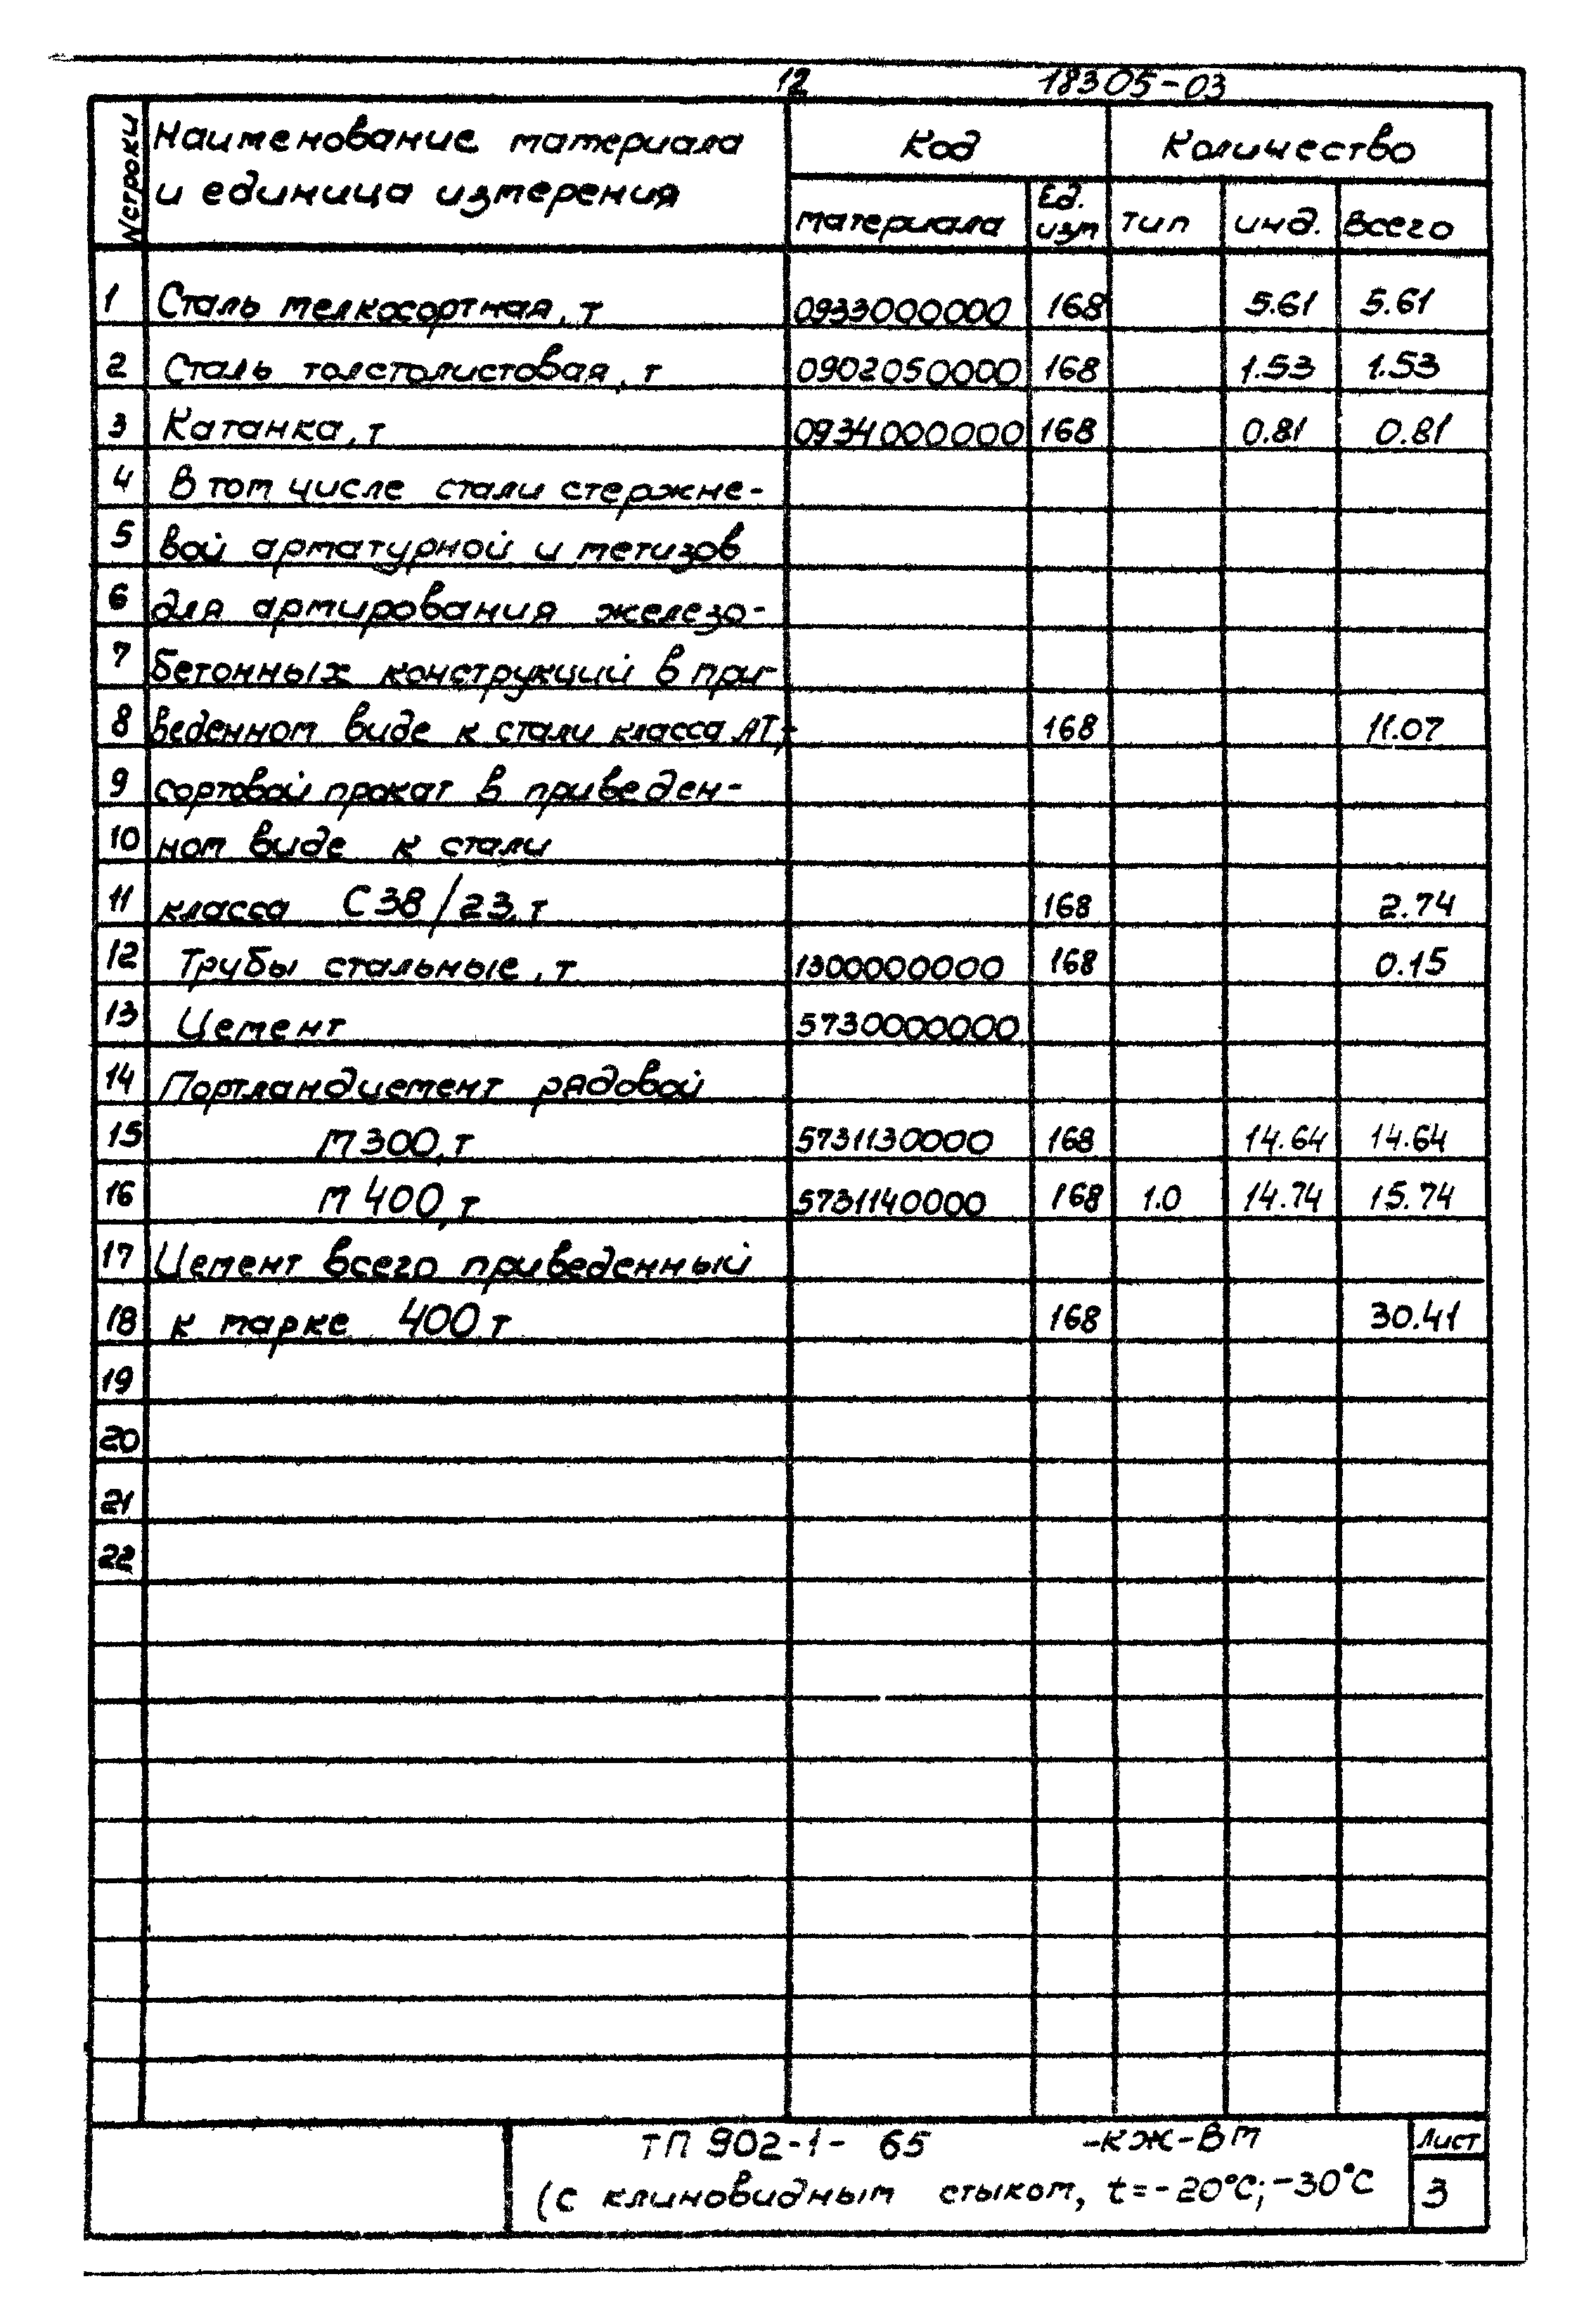 12 18305-03
N строки Наименование материала Код Количество
и единица измерения материала Ед. изм тип инд. Всего
1 Сталь мелкосортная, т 0933000000 168 5.61 5.61
2 Сталь толстолистовая, т 0902050000 168 1.53 1.53
3 Катанка, т 0934000000 168 0.81 0.81
4 В том числе стали стержне-
5 вой арматурной и метизов
6 для армирования железо-
7 бетонных конструкций в при-
8 веденном виде к стали класса АI, т 168 11.07
9 сортовой прокат в приведен-
10 ном виде к стали
11 класса С 38/23, т 168 2.74
12 Трубы стальные, т 1300000000 168 0.15
13 Цемент 5730000000
14 Портландцемент рядовой
15 М 300, т 5731130000 168 14.64 14.64
16 М 400, т 5731140000 168 1.0 14.74 15.74
17 Цемент всего приведенный
18 к марке 400 т 168 30.41
19
20
21
22
ТП 902-1- 65 -КЖ-ВМ Лист
(с клиновидным стыком, t=-20°С; -30°С 3